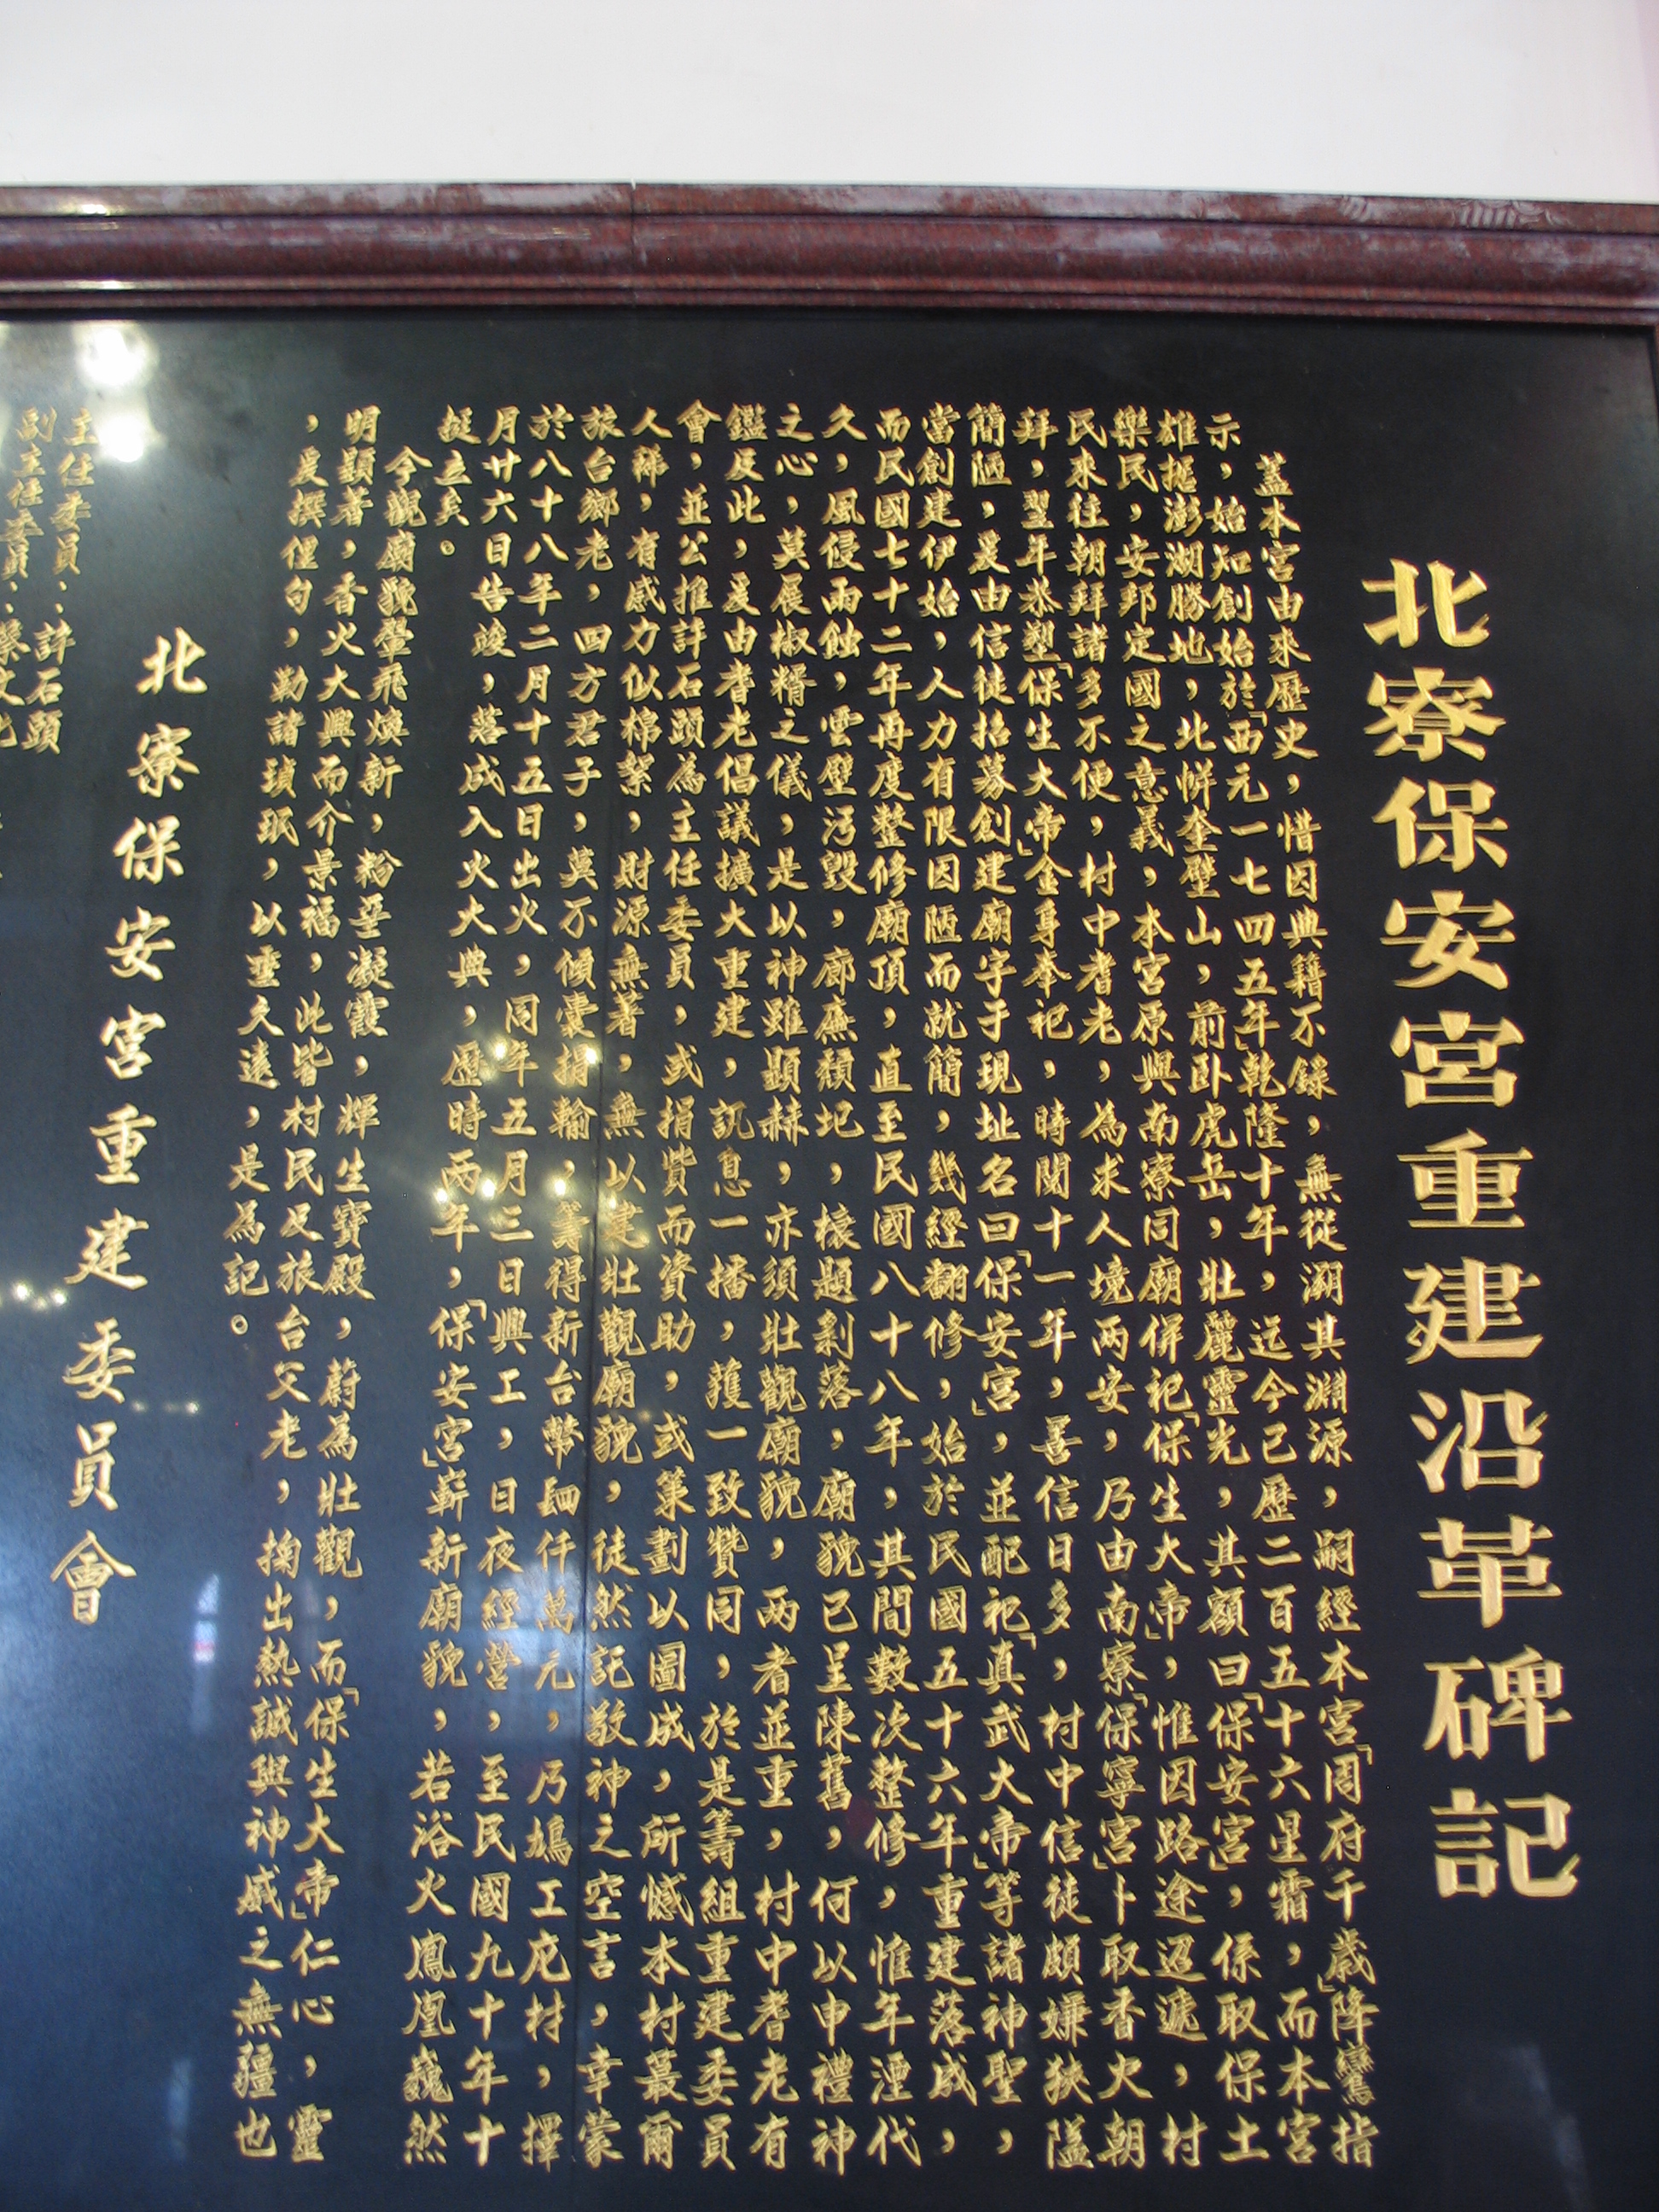 北寮保安宮重建沿革碑記
蓋本宮由來歷史，惜因典籍不錄，無從溯其淵源，嗣經本宮「周府千歲」降鸞指
示，始知創始於「西元一七四五年」乾隆十年，迄今已歷二百五十六星霜，而本宮
雄挺澎湖勝地，北恃奎壁山，前臥虎岳，壯麗靈光，其額曰「保安宮」，係取保土
樂民，安邦定國之意義，本宮原與南寮同廟併祀「保生大帝」，惟因路途迢遞，村
民來往朝拜諸多不便，村中耆老，為求人境兩安，乃由南寮「保寧宮」卜取香火朝
拜，翌年恭塑「保生大帝」金身奉祀，時閱十一年，善信日多，村中信徒頗嫌狹隘
簡陋，爰由信徒招募創建廟宇于現址名曰「保安宮」，並配祀「真武大帝」等諸神聖，
當創建伊始，人力有限因陋而就簡，幾經翻修，始於民國五十六年重建落成，
而民國七十二年再度整修廟頂，直至民國八十八年，其間數次整修，惟年湮代
久，風侵雨蝕，雲壁污毀，廊廡頹圮，榱題剝落，廟貌已呈陳舊，何以申禮神
之心，莫展椒糈之儀，是以神雖顯赫，亦須壯觀廟貌，兩者並重，村中耆老有
鑑及此，爰由耆老倡議擴大重建，訊息一播，獲一致贊同，於是籌組重建委員
會，並公推許石頭為主任委員，或捐貲而資助，或策劃以圖成，所憾本村蕞爾
人稀，有感力似棉絮，財源無著，無以建壯觀廟貌，徒然託敬神之空言，幸蒙
旅台鄉老，四方君子，莫不傾囊捐輸，籌得新台幣肆仟萬元，乃鳩工庀材，擇
於八十八年二月十五日出火，同年五月三日興工，日夜經營，至民國九十年十
月廿六日告竣，落成入火大典，歷時兩年，「保安宮」嶄新廟貌，若浴火鳳凰巍然
挺立矣。
今觀廟貌翬飛煥新，粉堊凝霞，輝生寶殿，蔚為壯觀，而「保生大帝」仁心，靈
明顯著，香火大興而介景福，此皆村民及旅台父老，掬出熱誠與神威之無疆也
，爰撰俚句，勒諸瑱珉，以垂久遠，是為記。
北寮保安宮重建委員會
主任委員：許石頭
副主任委員：蔡文